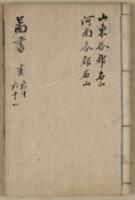 山東各郡名山
河南各郡名山
蒿書
六十
六十一